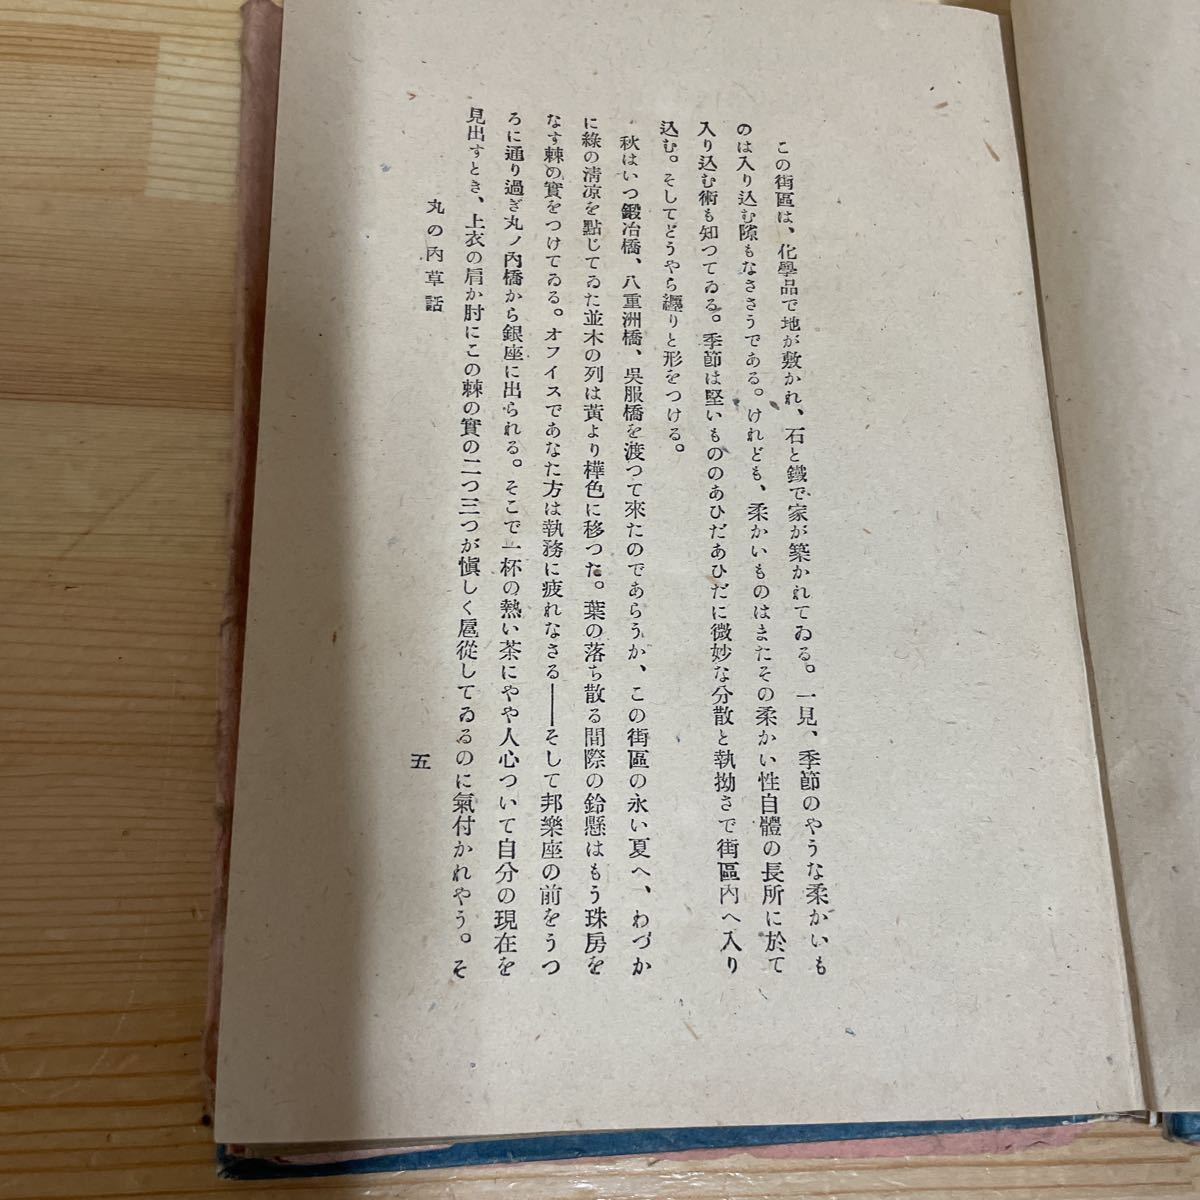 この街區は、化學品で地が敷かれ、石と鐵で家が築かれてゐる。一見、季節のやうな柔かいも
のは入り込む隙もなささうである。けれども、柔かいものはまたその柔かい性自體の長所に於て
入り込む術も知つてゐる。季節は堅いもののあひだあひだに微妙な分散と執拗さで街區内へ入り
込む。そしてどうやら纒りと形をつける。
秋はいつ鍛冶橋、八重洲橋、吳服橋を渡つて來たのであらうか、この街區の永い夏へ、わづか
に綠の淸凉を點じてゐた並木の列は黃より樺色に移つた。葉の落ち散る間際の鈴懸はもう珠房を
なす棘の實をつけてゐる。オフイスであなた方は執務に疲れなさる――そして邦樂座の前をうつ
ろに通り過ぎ丸ノ內橋から銀座に出られる。そこで一杯の熱い茶にやや人心ついて自分の現在を
見出すとき、上衣の肩か肘にこの棘の實の二つ三つが愼しく扈從してゐるのに氣付かれやう。そ
丸の內草話
五